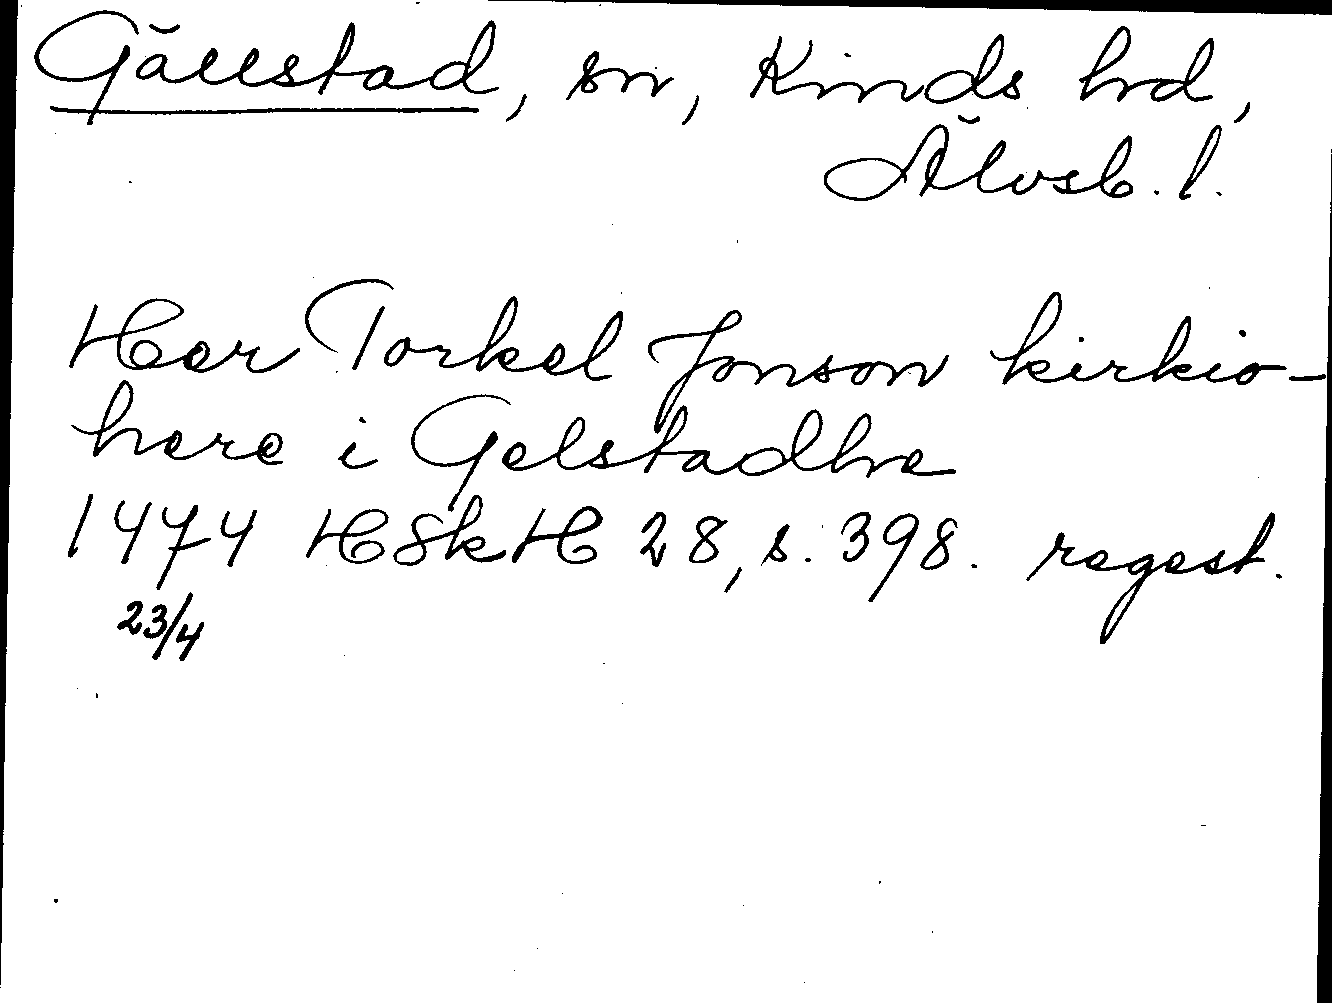 Gällstad, sn, Kinds hrd,
Älvsb. l.
Her Torkel Jonson kirkio-
here i Gelstadhe
1474 HSkH 28, s. 398. regest.
23/4